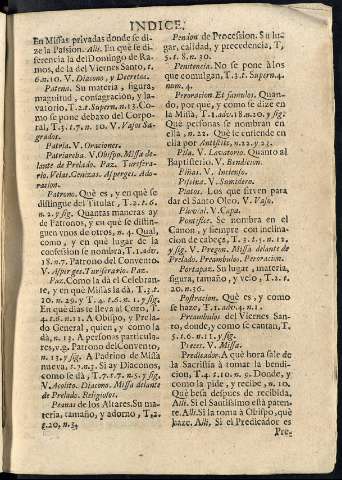 INDICE.
En Missas privadas donde se di-
ze la Passion. Alli. En què se di-
ferencia la del Domingo de Ra-
mos, de la del Viernes Santo, t.
6. n. 10. V. Diacono, y Decretos.
Patena. Su materia, figura,
magnitud, consagracion, y la-
vatorio, T. 2. t. Supern. n. 13. Co-
mo se pone debaxo del Corpo-
ral, T. 3. t. 7. n. 10. V. Vasos Sa-
grados.
Patria. V. Oraciones.
Patriarcha. V. Obispo. Missa de-
lante de Prelado. Paz. Turifera-
rio. Velas. Ceniza. Asperges. Ado-
racion.
Patrono. Què es, y en què se
distingue del Titular, T. 2. t. 6.
n. 2. y sig. Quantas maneras ay
de Patronos, y en què se distin-
guen vnos de otros, n. 4. Qual,
como, y en què lugar de la
confession se nombra, T. 1. adv.
18. n. 7. Patrono del Convento.
V. Asperges. Turiferario. Paz.
Paz. Como la dà el Celebran-
te, y en què Missas la dà, T. 3. t.
10. n. 29. y T. 4. t. 6. n. 1. y sig.
En què dias se lleva al Coro, T.
4. t. 6. n. 12. A Obispo, y Prela-
do General, quien, y como la
dà, n. 13. A personas particula-
res, v.g. Patrono del Convento,
n. 13. y sig. A Padrino de Missa
nueva, t. 7. n. 3. Si ay Diaconos,
como se dà, T. 7. t. 7. n. 5. y sig.
V. Acolito. Diacono. Missa delante
de Prelado. Religiosos.
Peanas de los Altares. Su ma-
teria, tamaño, y adorno, T. 2.
t. 20. n. 3.
Pension de Procession. Su lu-
gar, calidad, y precedencia, T,
5. t. 8. n. 30.
Penitencia. No se pone à los
que comulgan, T. 3. t. Supern. 4.
num. 4.
Peroracion Et famulos. Quan-
do, por què, y como se dize en
la Missa, T. 1. adv. 18. n. 20. y sig.
Què personas se nombran en
ella, n. 22. Què se entiende en
ella por Antistite, n. 22. y 23.
Pila. V. Lavatorio. Quanto al
Baptisterio. V. Bendicion.
Piñas. V. Incienso.
Piscina. V. Sumidero.
Platos. Los que sirven para
dar el Santo Oleo. V. Vaso.
Pluvial. V. Capa.
Pontifice. Se nombra en el
Canon, y siempre con inclina-
cion de cabeça, T. 3. t. 5. n. 12,
y sig. V. Pregon. Missa delante de
Prelado. Preambulos. Peroracion.
Portapaz. Su lugar, materia,
figura, tamaño, y velo, T. 2. t.
20. n. 36.
Postracion. Què es, y como
se haze, T. 1. adv. 4. n. 1.
Preambulos del Viernes San-
to, donde, y como se cantan, T,
5. t. 6. n. 11. y sig.
Preces. V. Missa.
Predicador. A què hora sale de
la Sacristia à tomar la bendi-
cion, T. 4. t. 10. n. 9. Donde, y
como la pide, y recibe, n. 10.
Què besa despues de recibida,
Alli. Si el Santissimo està paten-
te. Alli. Si la toma à Obispo, què
haze. Alli. Si el Predicador es
Pre-